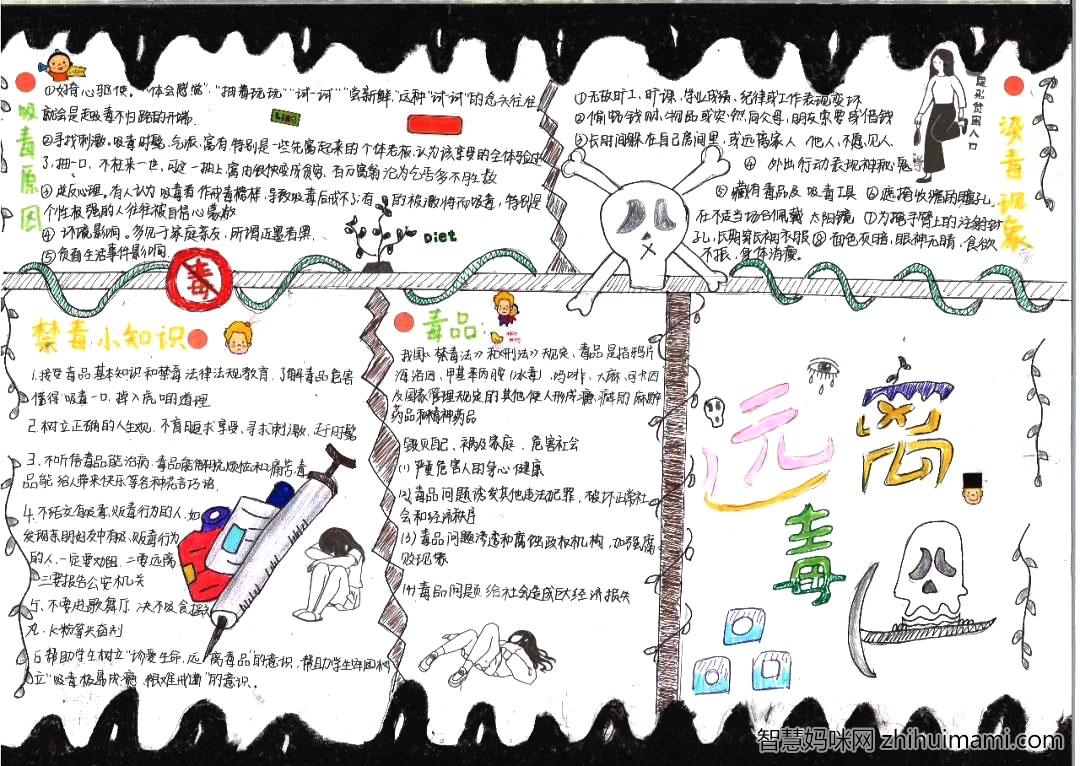 吸毒原因
①好奇心驱使。"体会感觉""抽着玩玩""试一试""尝新鲜",这种"试一试"的念头往往
就会是走吸毒不归路的开端.
②寻找刺激。吸毒时髦、气派、富有.特别是一些先富起来的个体老板,认为该享受的全体验过
了,抽一口,不枉来一世,
③逆反心理。有人认为吸毒
的被激将而吸毒,特别是
个性极强的人往往被自信心
④ 环境影响。多见于家庭亲友,所谓近墨者黑.
⑤负面生活事件影响
Diet
毒
①无故旷工、旷课,学业成绩、纪律或工作表现变坏
②偷窃钱财、物品或突然向父母、朋友索要或借钱
③长时间躲在自己房间里,或远离家人 他人,不愿见人.
④ 外出行动表现神秘鬼祟
⑤ 藏有毒品及吸毒工具 ⑥遮掩收缩的瞳孔,
在不适当场合佩戴 太阳镜 ⑦为掩手臂上的注射针
孔,长期穿长袖衣服⑧面色灰暗,眼神无睛,食欲
不振,身体消瘦。
染毒现象
禁毒小知识
1.接受毒品基本知识和禁毒法律法规教育,了解毒品危害
懂得"吸毒一口,掉入虎口"的道理
2.树立正确的人生观,不盲目追求享受、寻求刺激、赶时髦
3.不听信毒品能治病,毒品能解脱烦恼和痛苦,毒
品能给人带来快乐等各种花言巧语.
4.不结交有吸毒、贩毒行为的人.如
发现亲朋好友中有吸、贩毒行为
的人,一定要劝阻,二要远离
三要报告公安机关
5.不要进歌舞厅 决不吸食摇头
丸、K粉等兴奋剂
6.帮助学生树立"珍爱生命,远离毒品"的意识,帮助学生牢固树
立"吸毒极易成瘾 极难戒断"的意识。
毒品:
我国《禁毒法》和《刑法》规定、毒品是指鸦片
海洛因、甲基苯丙胺(冰毒)、吗啡、大麻、可卡因
及国家管理规定的其他使人形成瘾癖的麻醉
药品和精神药品
毁灭自己、祸及家庭、危害社会
(1)严重危害人的身心健康
(2)毒品问题诱发其他违法犯罪,破坏正常社
会和经济秩序
(3)毒品问题渗透和腐蚀政权机构,加强腐
败现象
(4)毒品问题给社会造成巨大经济损失
远离
毒
智慧妈咪网 zhihuimami.com